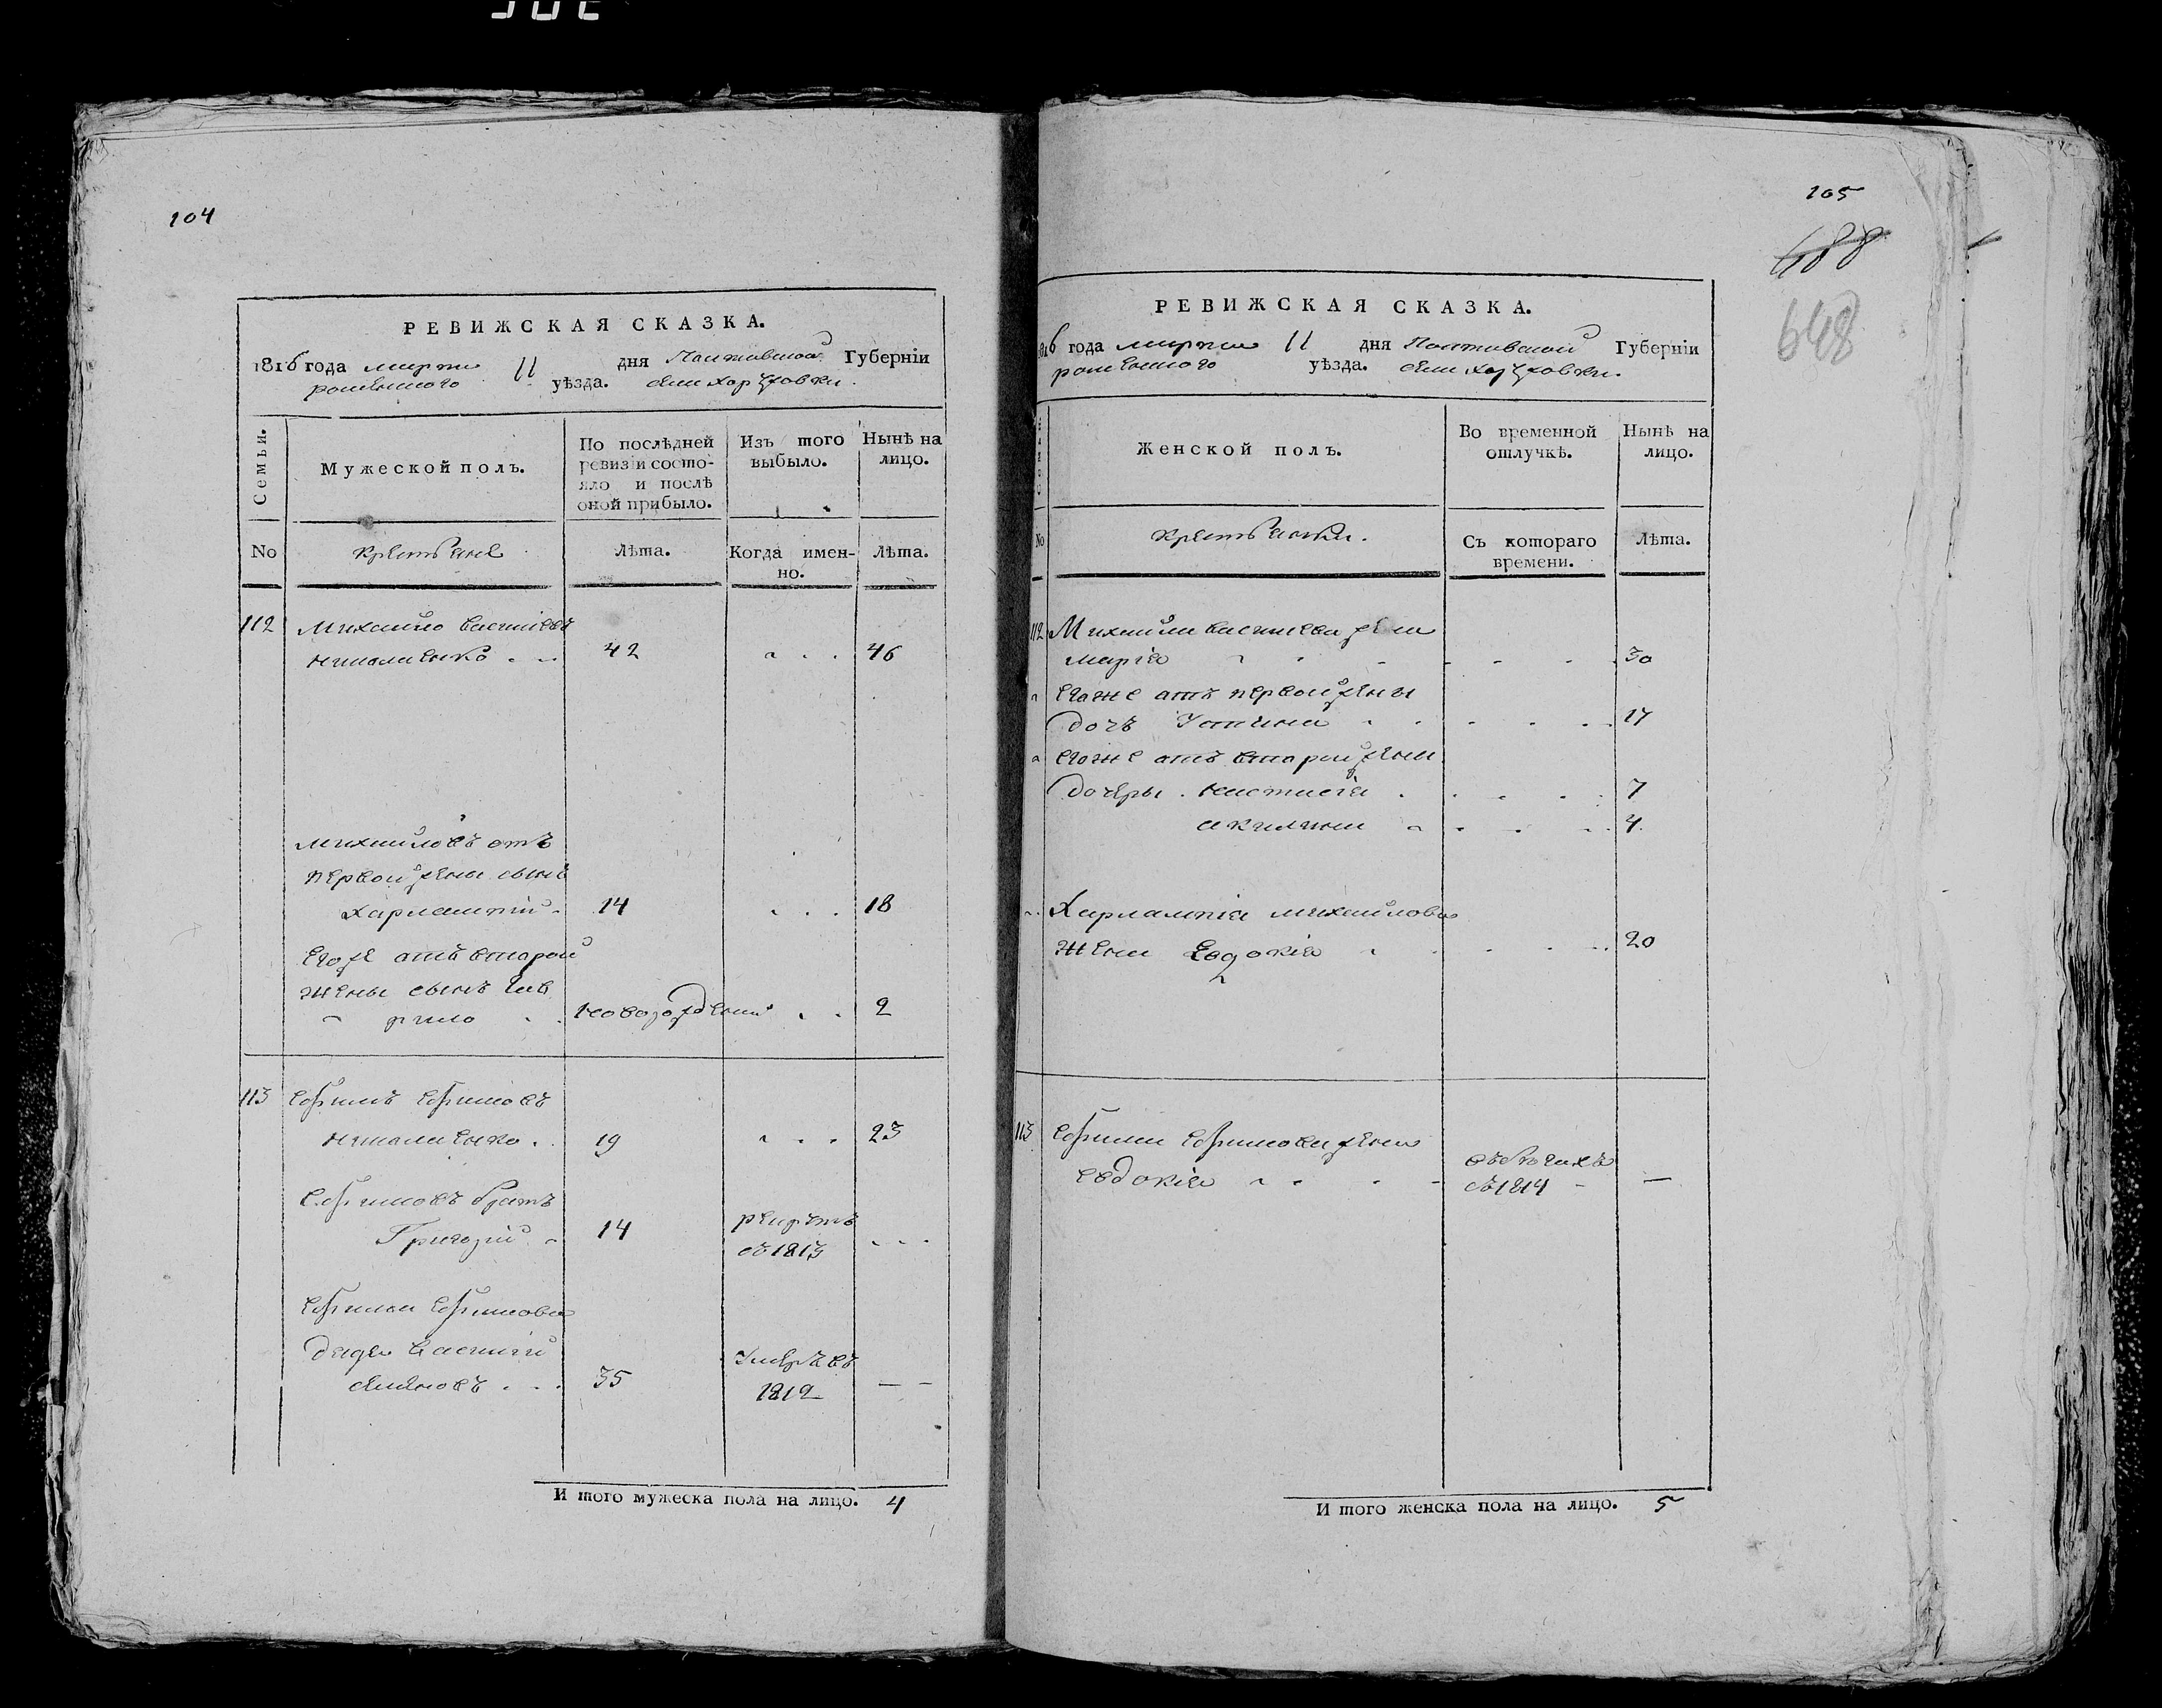 104
РЕВИЖСКАЯ СКАЗКА.
1816 года марта 11 дня Полтавской Губерніи
роменского уѣзда. села хоружовки.
Семьи.
Мужеской полъ.
По послѣдней ревизіи состояло и послѣ оной прибыло.
Изъ того выбыло.
Нынѣ на лицо.
No
крестьяне
Лѣта.
Когда именно.
Лѣта.
112 Михайло василіевъ
42 46
Михайловъ отъ
первой жены сынъ
Харлампій 14 18
Егоже отъ второй
жены сынъ Гав
рило новорожденъ 2
113 Ефимъ Ефимовъ
19 23
Ефимовъ братъ
Григорій 14 рекрутъ
съ 1813
Ефима Ефимова
дядя василій
35 умеръ въ
1812
И того мужеска пола на лицо. 4
105
688
648
РЕВИЖСКАЯ СКАЗКА.
1816 года марта 11 дня Полтавской Губерніи
роменского уѣзда. села хоружовки.
Женской полъ.
Во временной отлучкѣ.
Нынѣ на лицо.
No
крестьянки.
Съ котораго времени.
Лѣта.
112 Михайла василіева жена
марія 30
егоже отъ первой жены
дочь Устина 17
егоже отъ второй жены
дочеры настасія 7
акилина 4
Харлампія михайлова
жена Евдокія 20
113 Ефима Ефимова жена
евдокія въ бѣгахъ
съ 1814 —
И того женска пола на лицо. 5